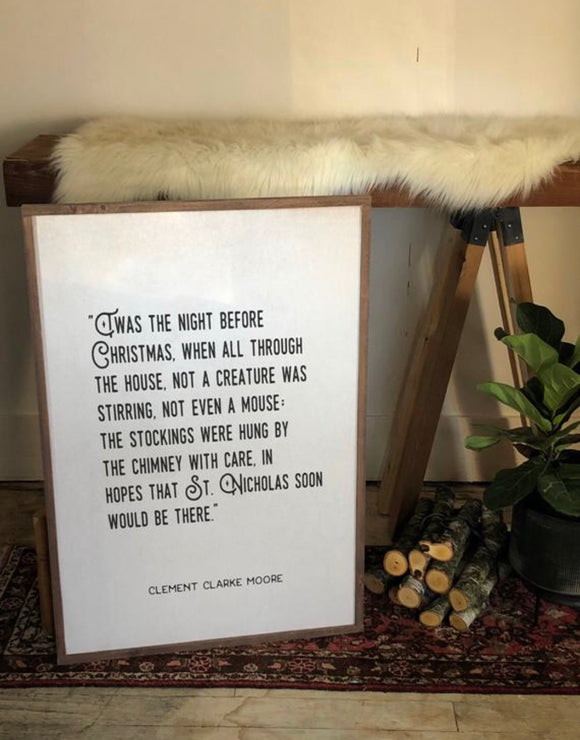 "'Twas the night before
Christmas, when all through
the house, not a creature was
stirring, not even a mouse;
the stockings were hung by
the chimney with care, in
hopes that St. Nicholas soon
would be there."
Clement Clarke Moore